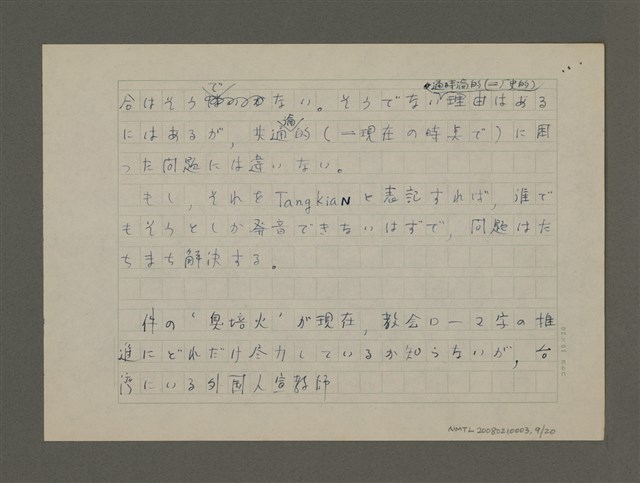 通時論的(一歴史的)
合はそうでない。そうでない理由はある
にはあるが,共通論的(一現在の時点で)に困
った問題には違いない。
もし,それをTangkiaNと表記すれば,誰で
もそうとしか発音できないはずで,問題はた
ちまち解決する。
件の‘奥培火’が現在,教会ローマ字の推
進にどれだけ尽力しているか知らないが,台
湾にいる外国人宣教師
NMTL 20080210003. 9/20